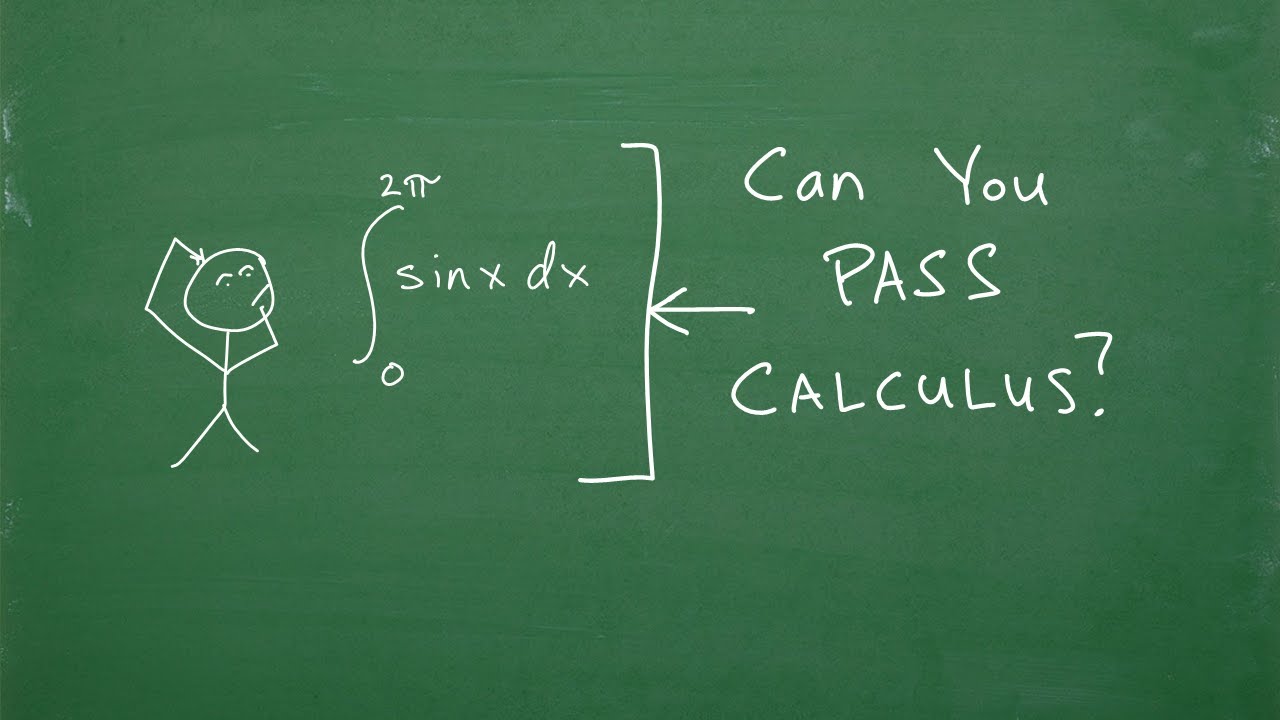 2π
∫ sinx dx
0
Can You
PASS
CALCULUS?